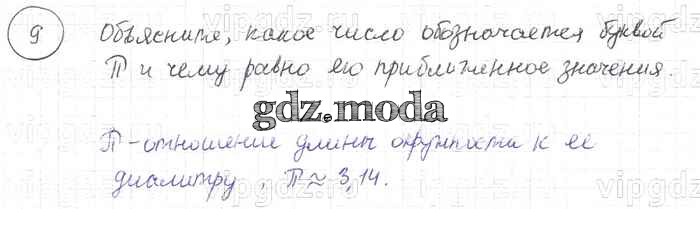 9 Объясните, какое число обозначается буквой
П и чему равно его приближенное значения.
gdz.moda
П - отношение длины окружности к ее
диаметру, П ≈ 3,14.